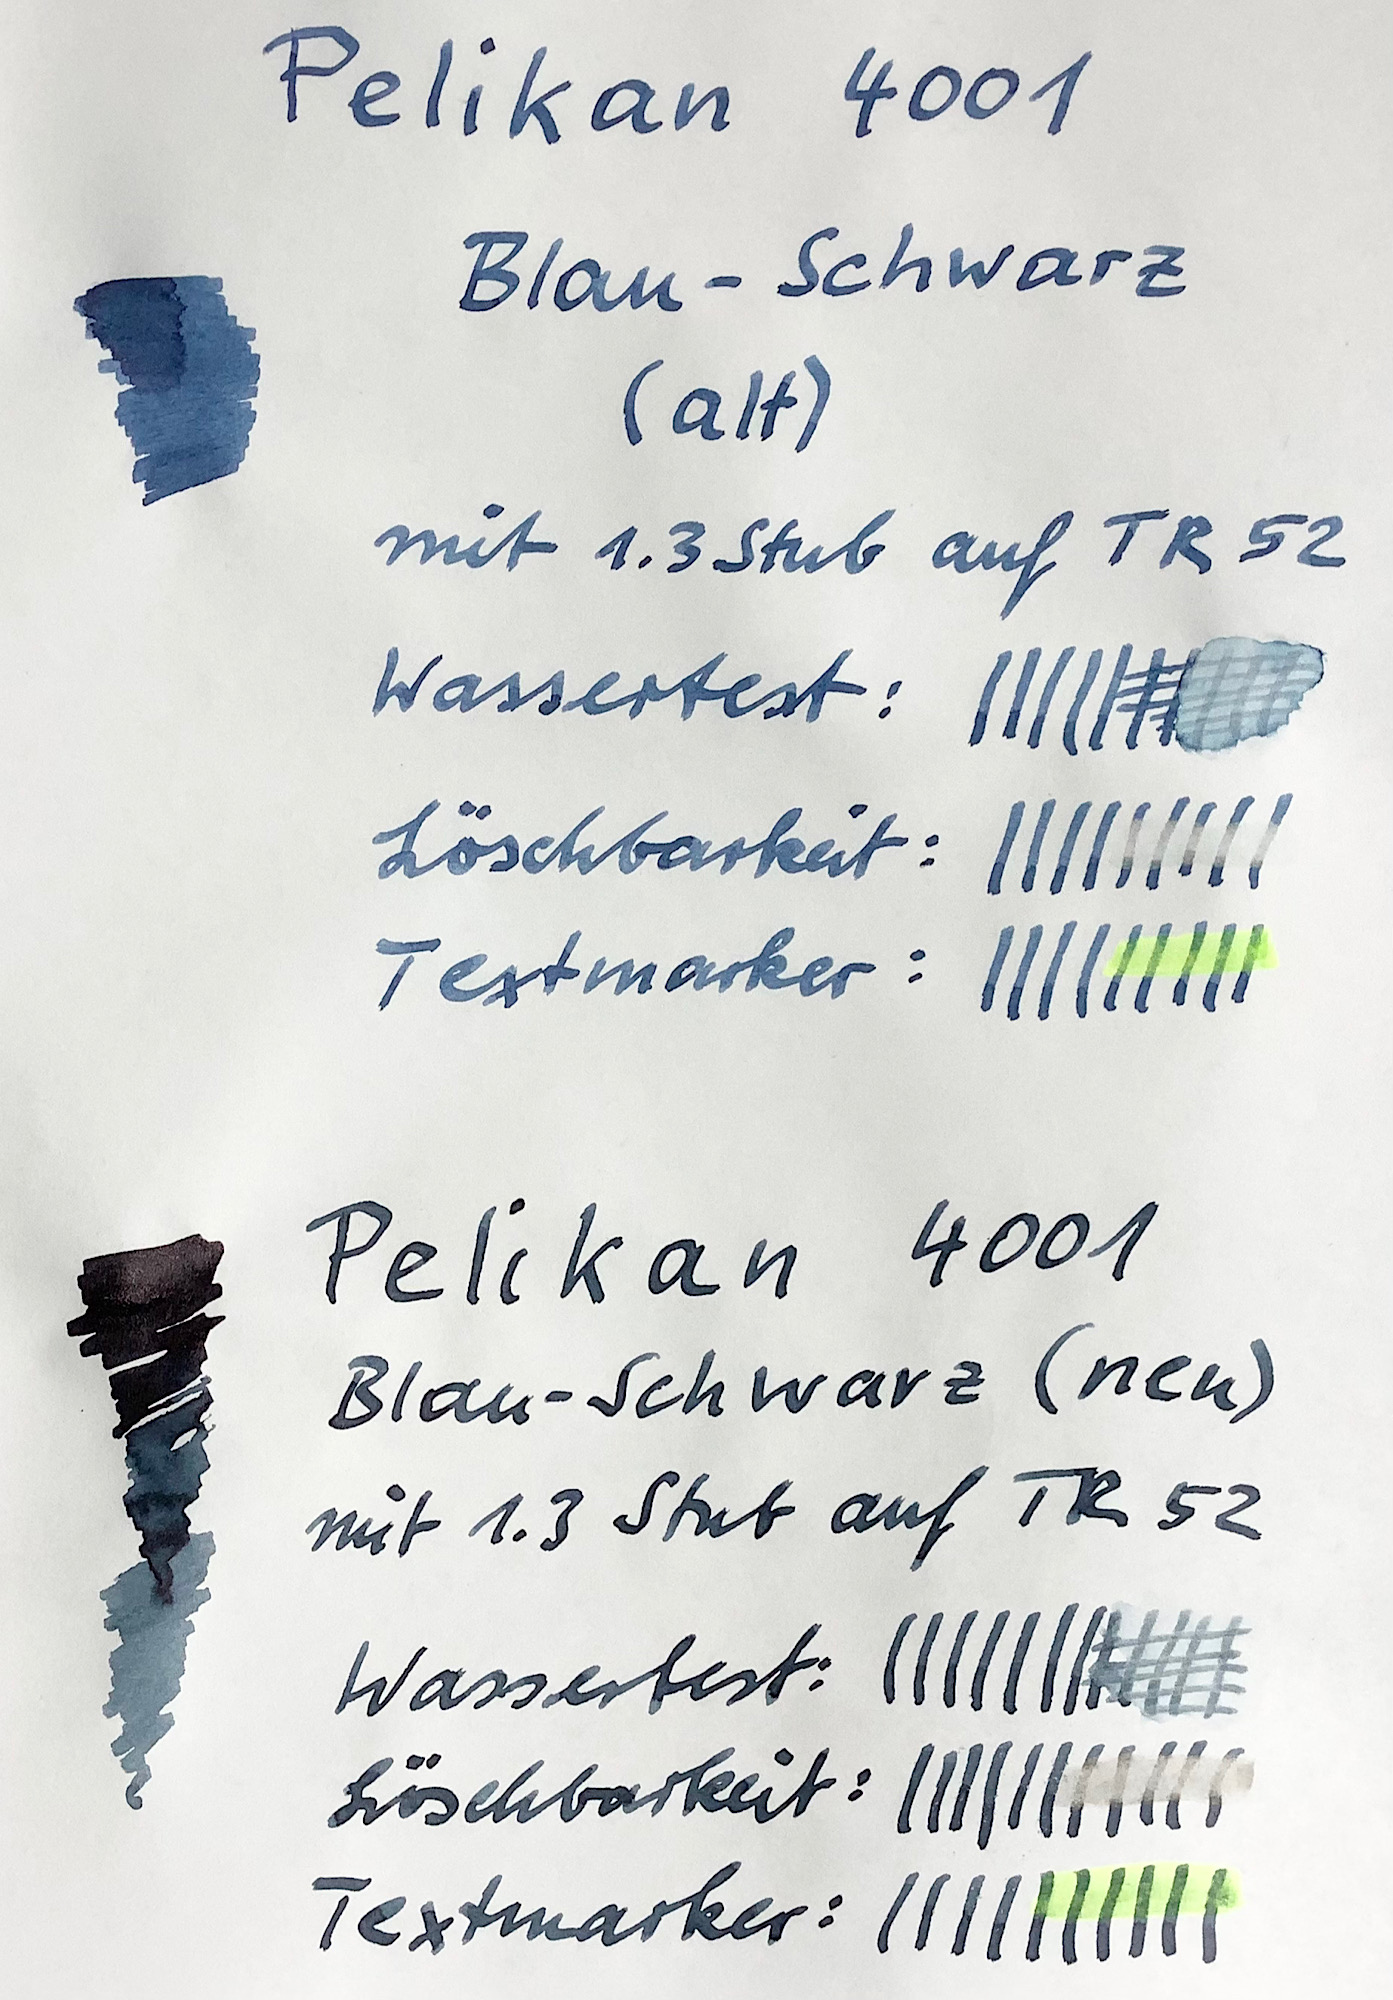 Pelikan 4001
Blau-Schwarz
(alt)
mit 1.3 Stub auf TR 52
Wassertest:
Löschbarkeit:
Textmarker:
Pelikan 4001
Blau-Schwarz (neu)
mit 1.3 Stub auf TR 52
Wassertest:
Löschbarkeit:
Textmarker: